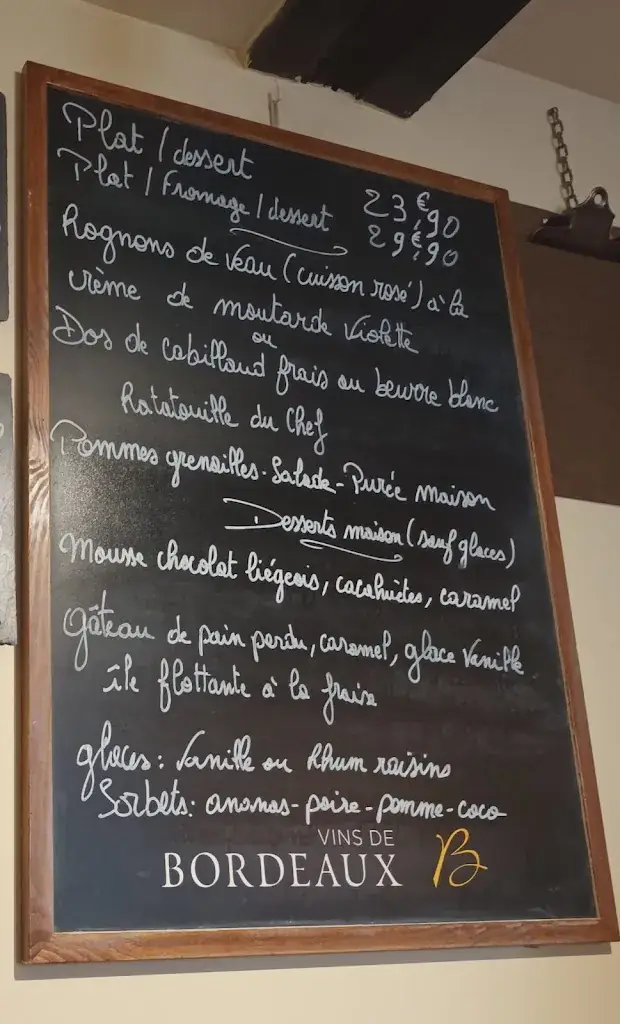 Plat / dessert 23,€90
Plat / Fromage / dessert 29,€90
Rognons de Veau (cuisson rosé) à la
crème de moutarde violette
ou
Dos de cabillaud frais au beurre blanc
Ratatouille du Chef
Pommes grenailles - Salade - Purée maison
Desserts maison (sauf glaces)
Mousse chocolat liégeois, cacahuètes, caramel
gâteau de pain perdu, caramel, glace vanille
île flottante à la fraise
glaces : Vanille ou Rhum raisins
Sorbets : ananas - poire - pomme - coco
VINS DE
BORDEAUX B